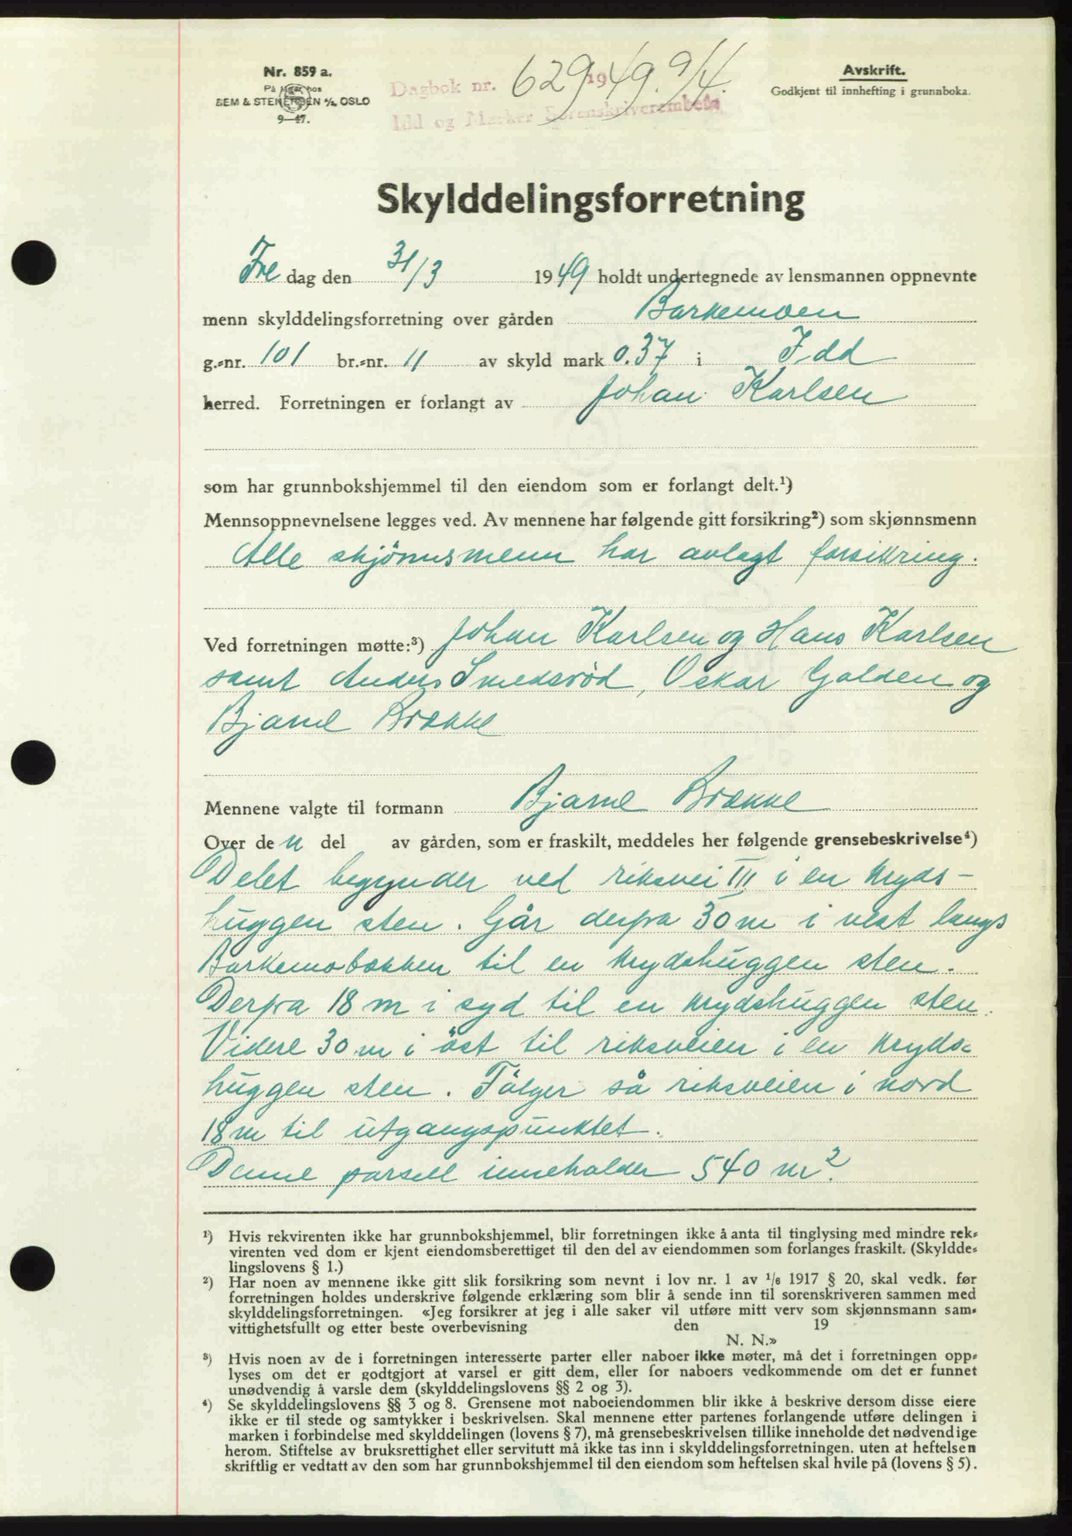 Nr. 859 a.
På lager hos
SEM & STENERSEN A/S, OSLO
9—47.
Dagbok nr. 629 1949. 9/4.
Idd og Marker Sorenskriverembete
Avskrift.
Godkjent til innhefting i grunnboka.
Skylddelingsforretning
Fre dag den 31/3 1949 holdt undertegnede av lensmannen oppnevnte
menn skylddelingsforretning over gården Barkemoen
g.-nr. 101 br.-nr. 11 av skyld mark 0.37 i Idd
herred. Forretningen er forlangt av Johan Karlsen
som har grunnbokshjemmel til den eiendom som er forlangt delt.¹)
Mennsoppnevnelsene legges ved. Av mennene har følgende gitt forsikring²) som skjønnsmenn
Alle skjönnsmenn har avlagt forsikring.
Ved forretningen møtte:³) Johan Karlsen og Hans Karlsen
samt Anders Smedsrød, Oskar Golden og
Bjarne Brække
Mennene valgte til formann Bjarne Brække
Over de n del av gården, som er fraskilt, meddeles her følgende grensebeskrivelse⁴)
Delet begynder ved riksvei III i en kryds-
huggen sten. Går derfra 30 m i vest langs
Barkemobækken til en krydshuggen sten.
Derfra 18 m i syd til en krydshuggen sten.
Videre 30 m i öst til riksveien i en kryds-
huggen sten. Fölger så riksveien i nord
18 m til utgangspunktet.
Denne parsell inneholder 540 m².
¹) Hvis rekvirenten ikke har grunnbokshjemmel, blir forretningen ikke å anta til tinglysing med mindre rek-
virenten ved dom er kjent eiendomsberettiget til den del av eiendommen som forlanges fraskilt. (Skyldde-
lingslovens § 1.)
²) Har noen av mennene ikke gitt slik forsikring som nevnt i lov nr. 1 av 1/6 1917 § 20, skal vedk. før
forretningen holdes underskrive følgende erklæring som blir å sende inn til sorenskriveren sammen med
skylddelingsforretningen. «Jeg forsikrer at jeg i alle saker vil utføre mitt verv som skjønnsmann sam-
vittighetsfullt og etter beste overbevisning den 19
N. N.»
³) Hvis noen av de i forretningen interesserte parter eller naboer ikke møter, må det i forretningen opp-
lyses om det er godtgjort at varsel er gitt dem, eller for naboers vedkommende om det er funnet
unødvendig å varsle dem (skylddelingslovens §§ 2 og 3).
⁴) Se skylddelingslovens §§ 3 og 8. Grensene mot naboeiendommen blir ikke å beskrive dersom disse eiere
ikke er til stede og samtykker i beskrivelsen. Skal mennene etter partenes forlangende utføre delingen i
marken i forbindelse med skylddelingen (lovens § 7), må grensebeskrivelsen tillike inneholde det nødvendige
herom. Stiftelse av bruksrettighet eller servitutt må ikke tas inn i skylddelingsforretningen, uten at heftelsen
skriftlig er vedtatt av den som har grunnbokshjemmel til den eiendom som heftelsen skal hvile på (lovens § 5).